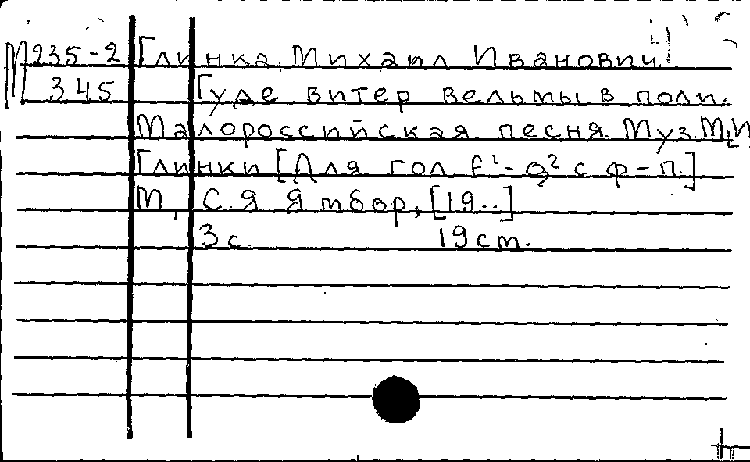 М 235-2 Глинка Михаил Иванович.
345 Гуде витер вельмы в поли.
Малороссийская песня. Муз. М. И
Глинки [Для гол f¹-g² с ф-п.]
М., С. Я Ямбор, [19..]
3 с. 19 см.